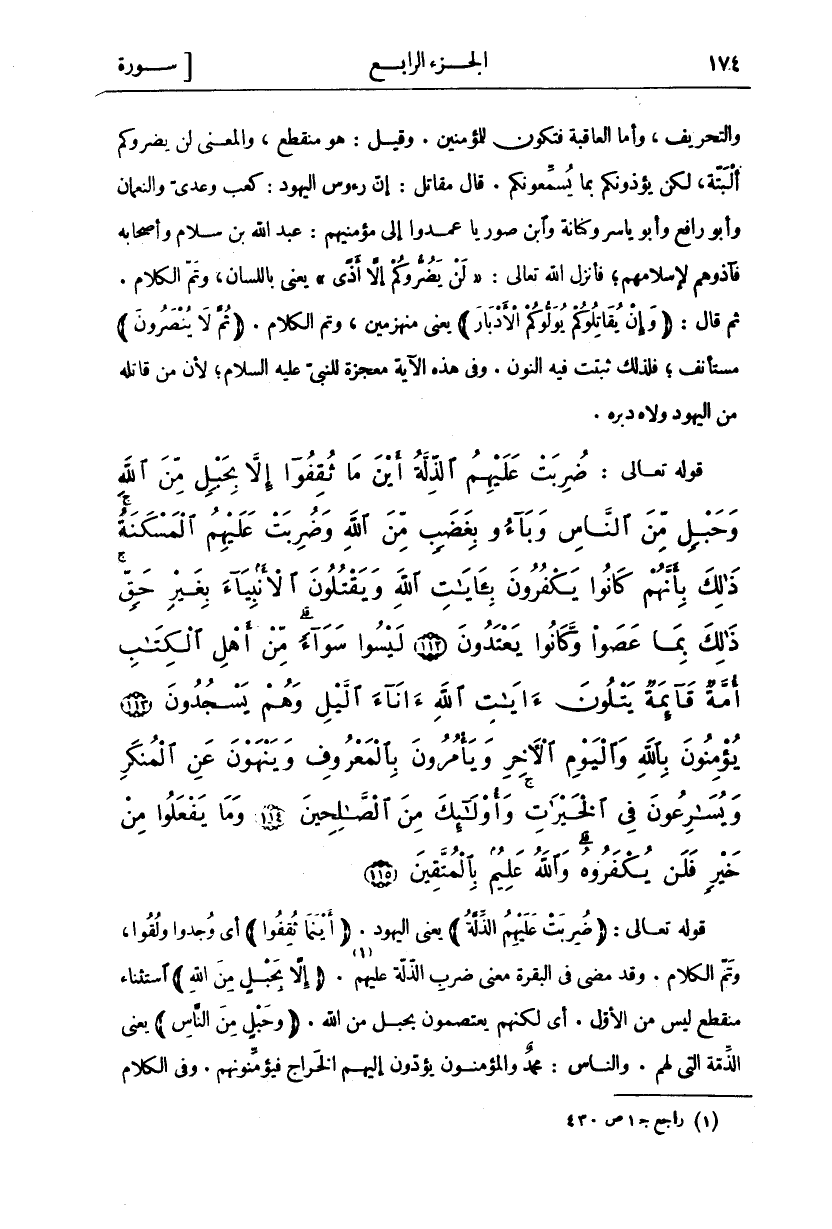 ١٧٤ الجزء الرابع [ سورة
والتحريف ، وأما العاقبة فتكون للمؤمنين . وقيل : هو منقطع ، والمعنى لن يضروكم
أَلْبَتّة، لكن يؤذونكم بما يُسمِّعونكم . قال مقاتل : إنّ رءوس اليهود : كعب وعدىّ والنعمان
وأبو رافع وأبو ياسر وكنانة وآبن صوريا عمدوا إلى مؤمنيهم : عبد الله بن سلام وأصحابه
فآذوهم لإسلامهم؛ فأنزل الله تعالى : « لَنْ يَضُرُّوكُمْ إِلَّا أَذًى » يعنى باللسان، وتَمّ الكلام .
ثم قال : ﴿ وَإِنْ يُقَاتِلُوكُمْ يُوَلُّوكُمُ الْأَدْبَارَ ﴾ يعنى منهزمين ، وتم الكلام . ﴿ ثُمَّ لَا يُنْصَرُونَ ﴾
مستأنف ؛ فلذلك ثبتت فيه النون . وفى هذه الآية معجزة للنبىّ عليه السلام؛ لأن من قاتله
من اليهود ولاه دبره .
قوله تعالى : ضُرِبَتْ عَلَيْهِمُ ٱلذِّلَّةُ أَيْنَ مَا ثُقِفُوٓا۟ إِلَّا بِحَبْلٍ مِّنَ ٱللَّهِ
وَحَبْلٍ مِّنَ ٱلنَّاسِ وَبَآءُو بِغَضَبٍ مِّنَ ٱللَّهِ وَضُرِبَتْ عَلَيْهِمُ ٱلْمَسْكَنَةُ ۚ
ذَٰلِكَ بِأَنَّهُمْ كَانُوا يَكْفُرُونَ بِـَٔايَٰتِ ٱللَّهِ وَيَقْتُلُونَ ٱلْأَنۢبِيَآءَ بِغَيْرِ حَقٍّ ۚ
ذَٰلِكَ بِمَا عَصَوا۟ وَّكَانُوا يَعْتَدُونَ ﴿١١٢﴾ لَيْسُوا سَوَآءً ۗ مِّنْ أَهْلِ ٱلْكِتَٰبِ
أُمَّةٌ قَآئِمَةٌ يَتْلُونَ ءَايَٰتِ ٱللَّهِ ءَانَآءَ ٱلَّيْلِ وَهُمْ يَسْجُدُونَ ﴿١١٣﴾
يُؤْمِنُونَ بِٱللَّهِ وَٱلْيَوْمِ ٱلْآخِرِ وَيَأْمُرُونَ بِٱلْمَعْرُوفِ وَيَنْهَوْنَ عَنِ ٱلْمُنكَرِ
وَيُسَٰرِعُونَ فِى ٱلْخَيْرَٰتِ ۚ وَأُو۟لَٰٓئِكَ مِنَ ٱلصَّٰلِحِينَ ﴿١١٤﴾ وَمَا يَفْعَلُوا مِنْ
خَيْرٍ فَلَن يُكْفَرُوهُ ۗ وَٱللَّهُ عَلِيمٌۢ بِٱلْمُتَّقِينَ ﴿١١٥﴾
قوله تعالى : ﴿ ضُرِبَتْ عَلَيْهِمُ الذِّلَّةُ ﴾ يعنى اليهود . ﴿ أَيْنَمَا ثُقِفُوا ﴾ أى وُجدوا ولُقُوا ،
وتَمّ الكلام . وقد مضى فى البقرة معنى ضرب الذّلّة عليهم (١) . ﴿ إِلَّا بِحَبْلٍ مِنَ اللهِ ﴾ آستثناء
منقطع ليس من الأوّل . أى لكنهم يعتصمون بحبل من الله . ﴿ وحَبْلٍ مِنَ النَّاسِ ﴾ يعنى
الذِّمة التى لهم . والناس : محمدٌ والمؤمنون يؤدّون إليهم الخَراج فيؤمِّنونهم . وفى الكلام
(١) راجع جـ ١ ص ٤٣٠